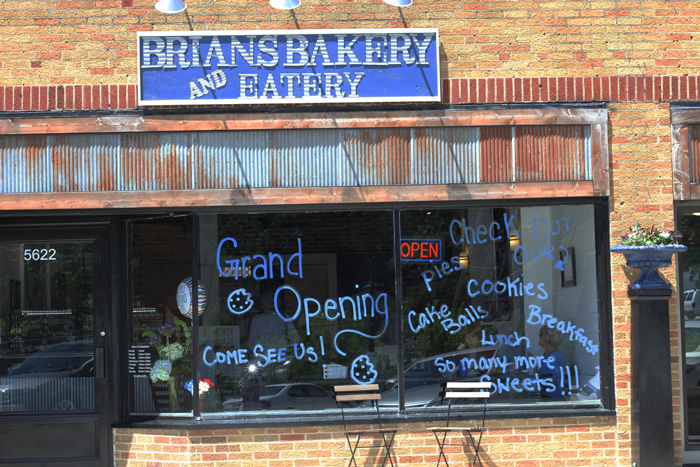 BRIANS BAKERY
AND EATERY
5622
OPEN
Grand
Opening
COME SEE US!
CHECK OUT
OUR
Pies
COOKIES
Cake
Balls
Breakfast
Lunch
so many more
Sweets!!!